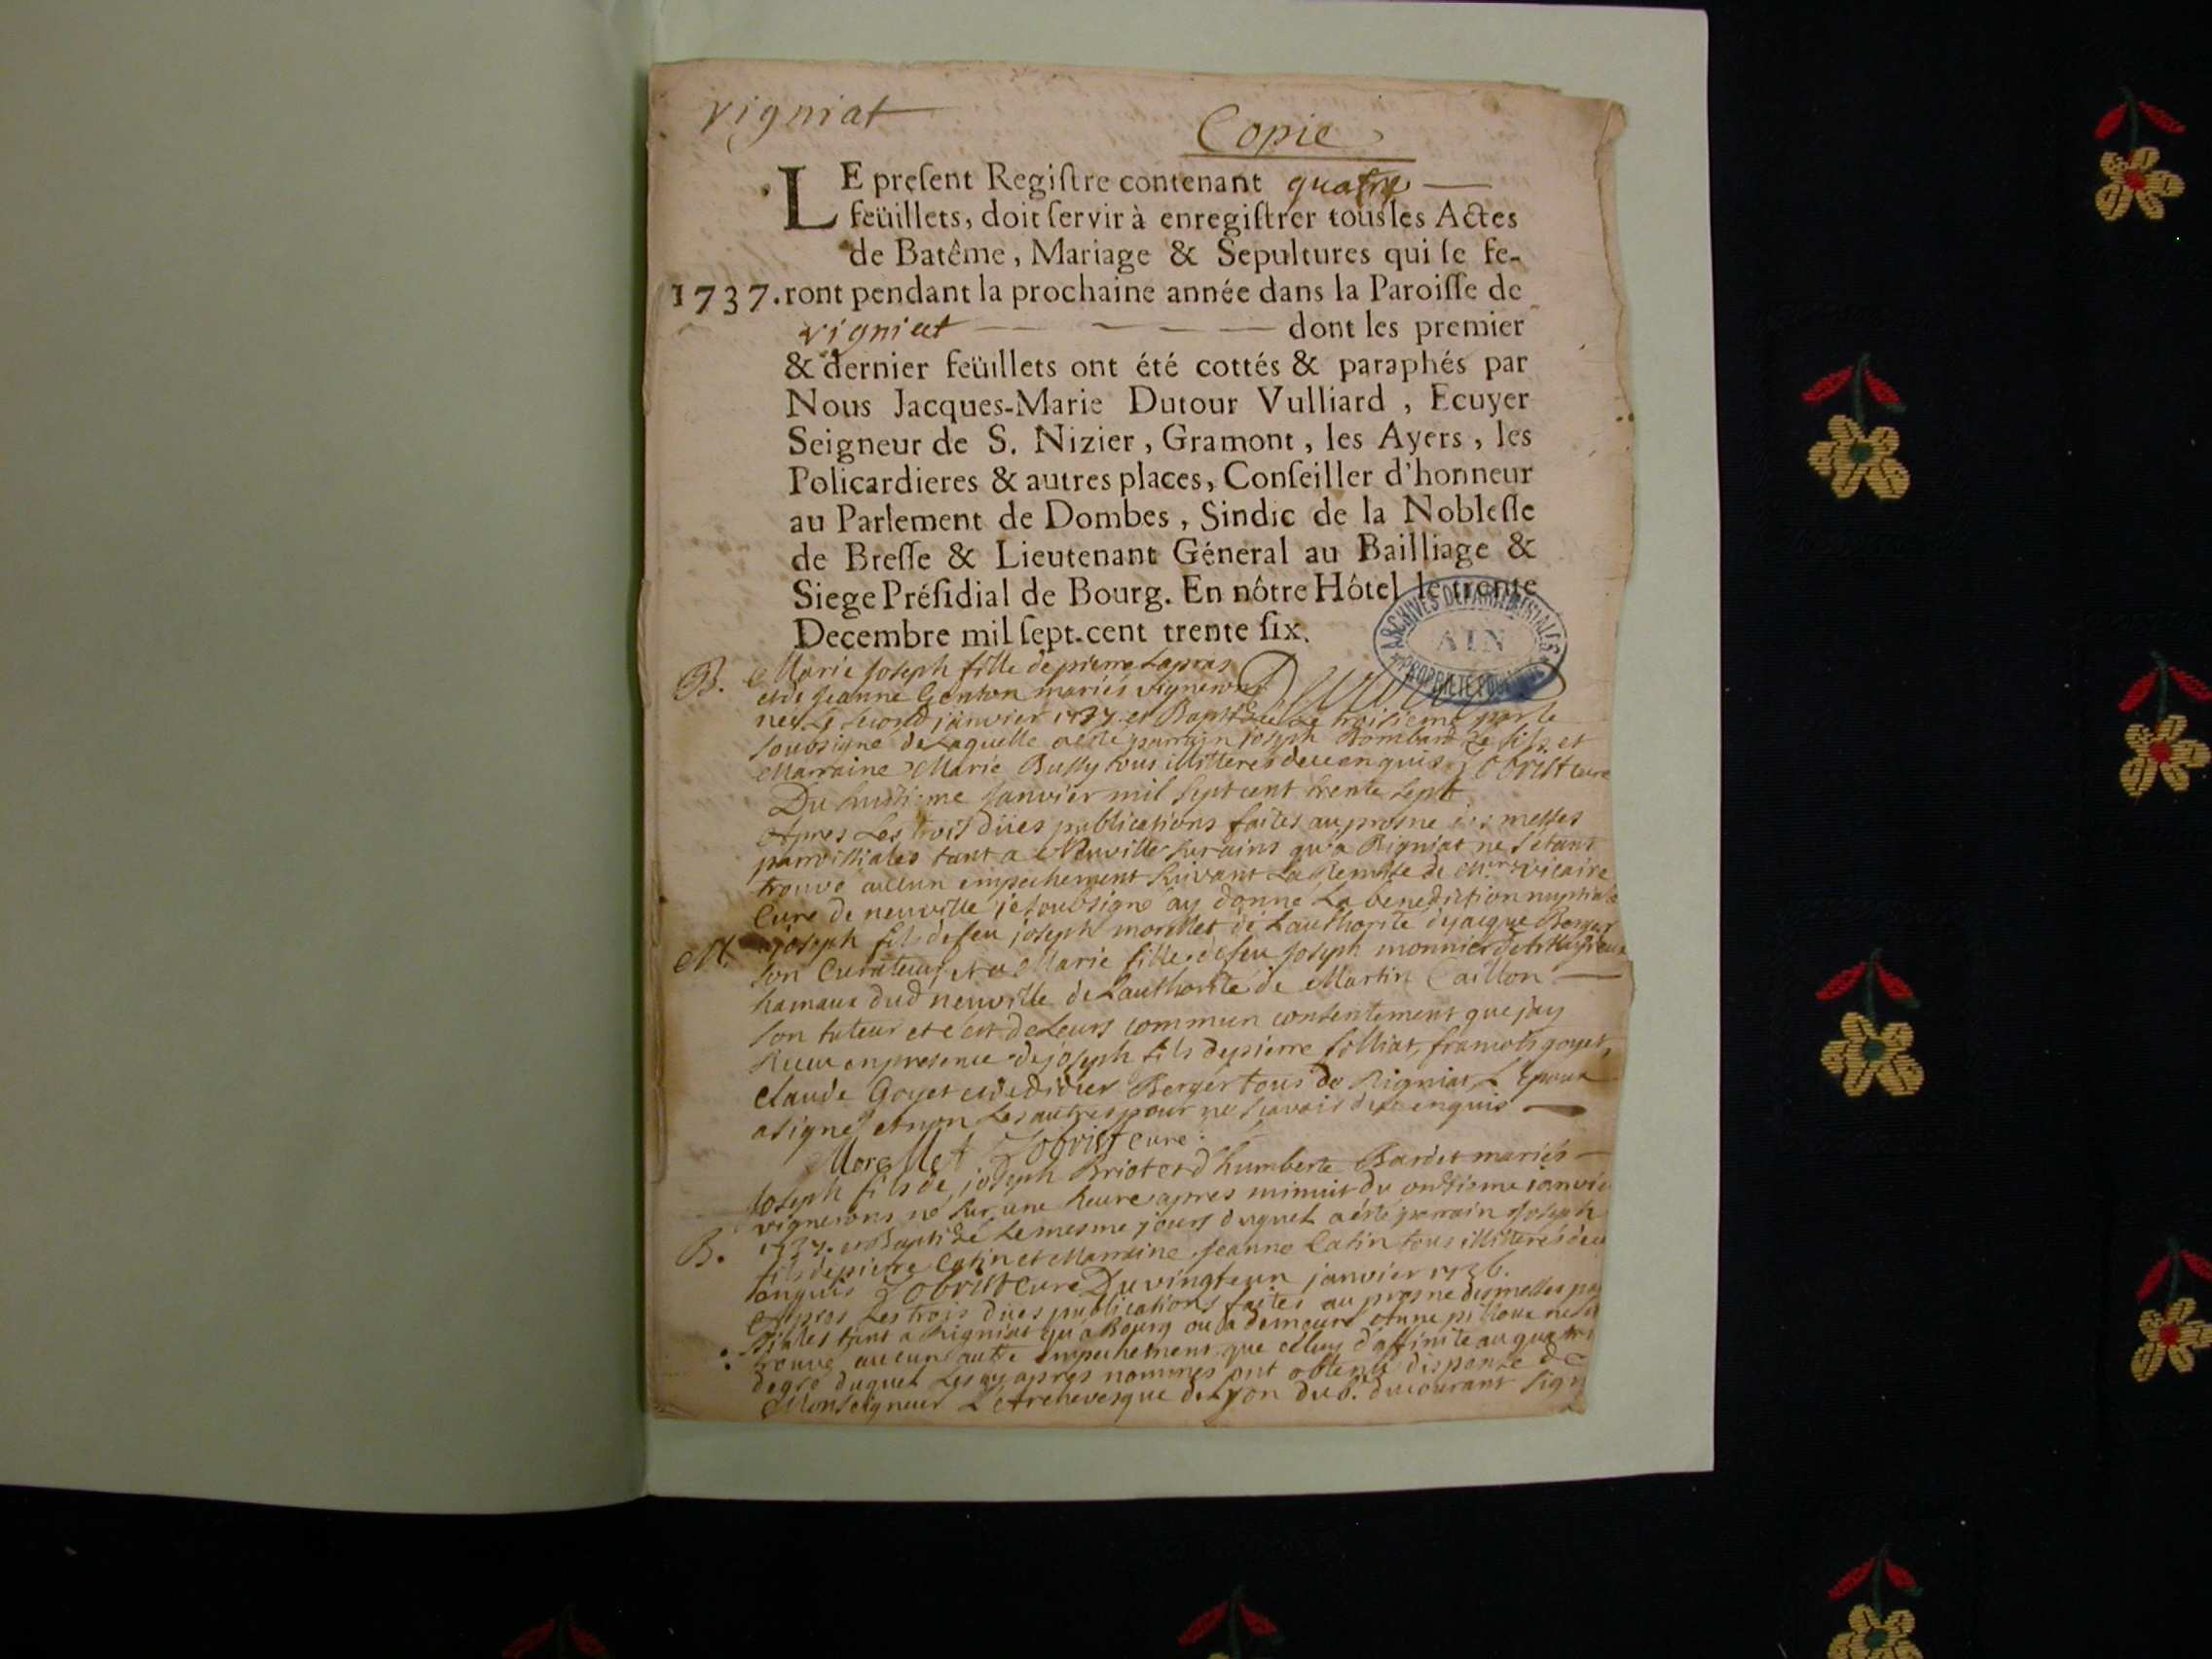 vigniat
Copie
LE preſent Regiſtre contenant quatre
feüillets, doit ſervir à enregiſtrer tous les Actes
de Batême, Mariage & Sepultures qui ſe fe-
1737. ront pendant la prochaine année dans la Paroiſſe de
vigniat dont les premier
& dernier feüillets ont été cottés & paraphés par
Nous Jacques-Marie Dutour Vulliard, Ecuyer
Seigneur de S. Nizier, Gramont, les Ayers, les
Policardieres & autres places, Conſeiller d'honneur
au Parlement de Dombes, Sindic de la Nobleſſe
de Breſſe & Lieutenant Géneral au Bailliage &
Siege Préſidial de Bourg. En nôtre Hôtel le trente
Decembre mil ſept-cent trente ſix.
ARCHIVES DEPARTEMENTALES
AIN
PROPRIETE PUBLIQUE
B. Marie Joseph fille de pierre Lapras
et de Jeanne Genton mariés vignerons
née Le second janvier 1737 et Baptisée Le troisieme par le
soubsigne de Laquelle a esté parrain joseph Bombard Le fils et
Marraine Marie Bussy tous illitterés de ce enquis Jobrist curé
Du huitieme Janvier mil sept cent trente sept
Apres Les trois dües publications faites au prosne des messes
parroissiales tant a Neuville sur ains qu'a Rigniat ne s'etant
trouvé aucun empechement suivant La Remise de vicaire
Curé de neuville je soubsigné ay donné La benediction nuptiale
M. a joseph fils de feu joseph morellet de L'authorité de jacque Berger
son Curateur, et a Marie fille de feu Joseph monnier
hamaux dud neuville de L'authorité de Martin Caillon
son tuteur et c'est de Leurs commun consentement que j'ay
Receu en presence de joseph fils de pierre folliat, francois goyet,
claude Goyet et de didier Berger tous de Rigniat, L'Epoux
a signé et non Les autres pour ne scavoir de ce enquis
Morellet Jobrist curé.
Joseph fils de joseph Briot et d'humberte Bardet mariés
vignerons né sur une heure apres minuit du onzieme janvie
B. 1737. et Baptizé Le mesme jours duquel a esté parrain Joseph
fils de pierre Catin et Marraine Jeanne Catin tous illitterés de ce
enquis Jobrist curé Du vingt eun janvier 1736.
Apres Les trois dües publications faites au prosne des messes pa
ssiales tant a Rigniat qu'a Bourg ou a demeuré ne se
trouvé aucun autre empechement que celuy d'affinité au quatri
degré duquel Les cy apres nommés ont obtenus dispense de
Monseigneur L'Archevesque de Lyon du 6. du courant sign